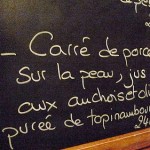 - Carré de porc
sur la peau, jus
aux anchois et
purée de topinambour